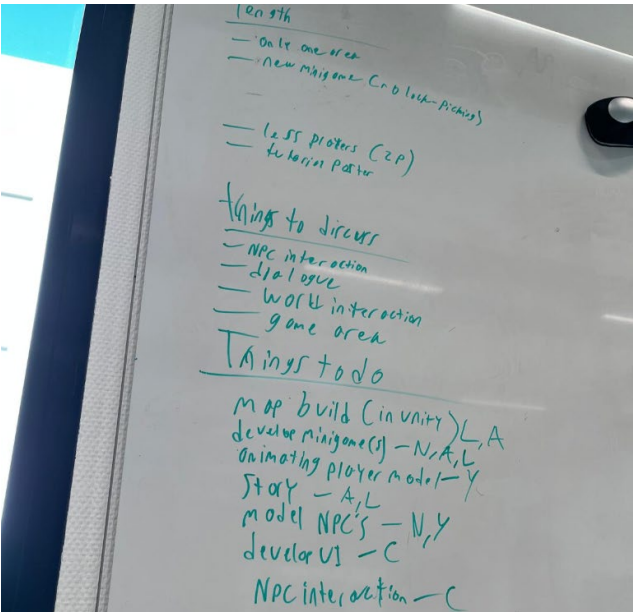 length
— only one area
— new minigame (no lock-picking)
— less players (2P)
— tutorial poster
things to discuss
— NPC interaction
— dialogue
— world interaction
— game area
Things to do
map build (in unity) L, A
develop minigame(s) — N, A, L
animating player model — Y
Story — A, L
model NPC's — N, Y
develop UI — C
NPC interaction — C